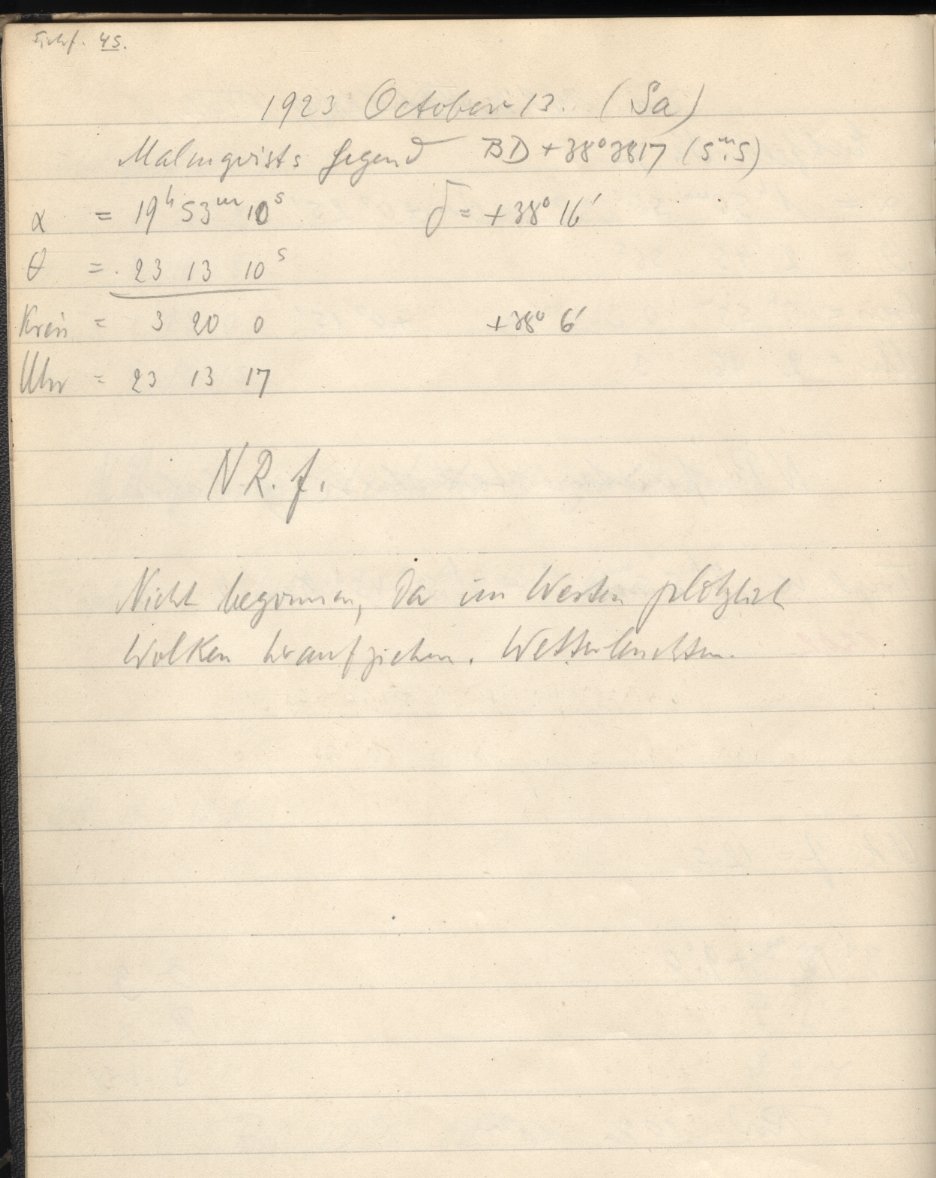 45.
1923 October 13. (Sa)
Malmqvists Gegend BD +38°3817 (5ᵐ.5)
α = 19ʰ 53ᵐ 10ˢ δ = +38° 16′
θ = 23 13 10ˢ
Kreis = 3 20 0 +38° 6′
Uhr = 23 13 17
N R. f.
Nicht begonnen, da im Westen plötzlich
Wolken heraufziehen. Wetterleuchten.